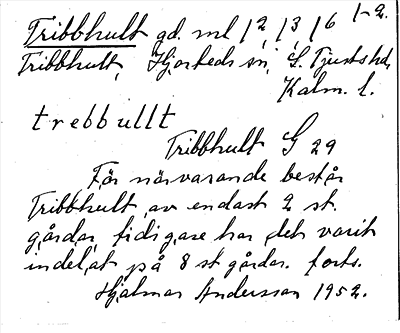 Tribbhult gd. ml 12, 13, 16 1-2.
Tribbhult, Hjorteds sn, S. Tjusts hd,
Kalm. l.
trebbullt
Tribbhult G 29
För närvarande består
Tribbhult av endast 2 st.
gårdar, tidigare har det varit
indelat på 8 st gårdar. forts.
Hjalmar Andersson 1952.